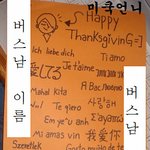 미국언니
Happy
ThanksgivinG =]
Ich liebe dich
Ti amo
愛してる
Je t'aime
Mahal kita
Я вас Люблю
Te quiero
사랑해
Em ye'u anh
Mi amas vin
我爱你
Szeretlek
버스남 이름
버스남